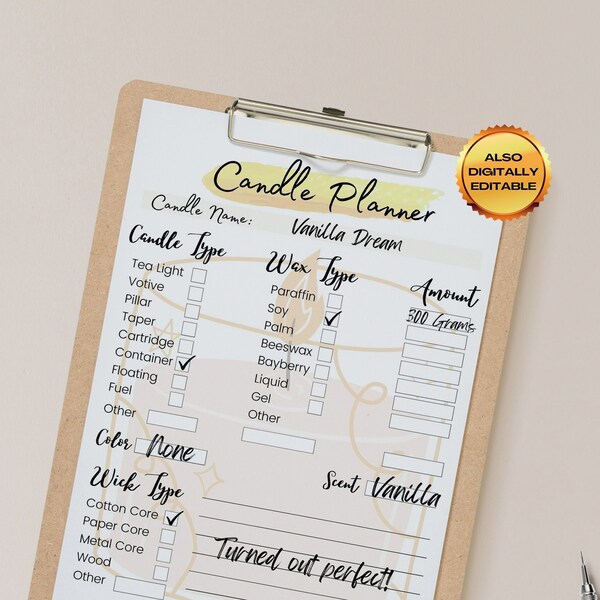 ALSO
DIGITALLY
EDITABLE
Candle Planner
Candle Name: Vanilla Dream
Candle Type
Tea Light
Votive
Pillar
Taper
Cartridge
Container ✓
Floating
Fuel
Other
Wax Type
Paraffin
Soy ✓
Palm
Beeswax
Bayberry
Liquid
Gel
Other
Amount
300 Grams
Color None
Scent Vanilla
Wick Type
Cotton Core ✓
Paper Core
Metal Core
Wood
Other
Turned out perfect!